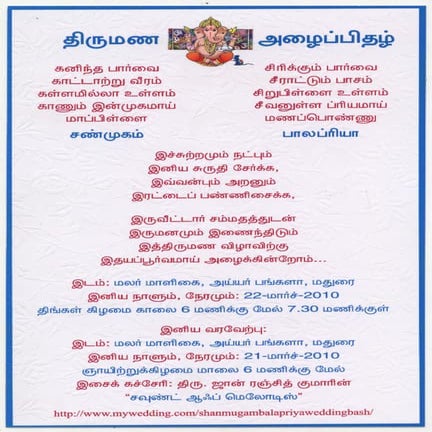 திருமண அழைப்பிதழ்
கனிந்த பார்வை
காட்டாற்று வீரம்
கள்ளமில்லா உள்ளம்
காணும் இன்முகமாய்
மாப்பிள்ளை
சண்முகம்
சிரிக்கும் பார்வை
சீராட்டும் பாசம்
சிறுபிள்ளை உள்ளம்
சீவனுள்ள ப்ரியமாய்
மணப்பொண்ணு
பாலப்ரியா
இச்சுற்றமும் நட்பும்
இனிய சுருதி சேர்க்க,
இவ்வன்பும் அறனும்
இரட்டைப் பண்ணிசைக்க,
இருவீட்டார் சம்மதத்துடன்
இருமனமும் இணைந்திடும்
இத்திருமண விழாவிற்கு
இதயப்பூர்வமாய் அழைக்கின்றோம்...
இடம்: மலர் மாளிகை, அய்யர் பங்களா, மதுரை
இனிய நாளும், நேரமும்: 22-மார்ச்-2010
திங்கள் கிழமை காலை 6 மணிக்கு மேல் 7.30 மணிக்குள்
இனிய வரவேற்பு:
இடம்: மலர் மாளிகை, அய்யர் பங்களா, மதுரை
இனிய நாளும், நேரமும்: 21-மார்ச்-2010
ஞாயிற்றுக்கிழமை மாலை 6 மணிக்கு மேல்
இசைக் கச்சேரி: திரு. ஜான் ரஞ்சித் குமாரின்
"சவுண்ட் ஆஃப் மெலோடிஸ்"
http://www.mywedding.com/shanmugambalapriyaweddingbash/